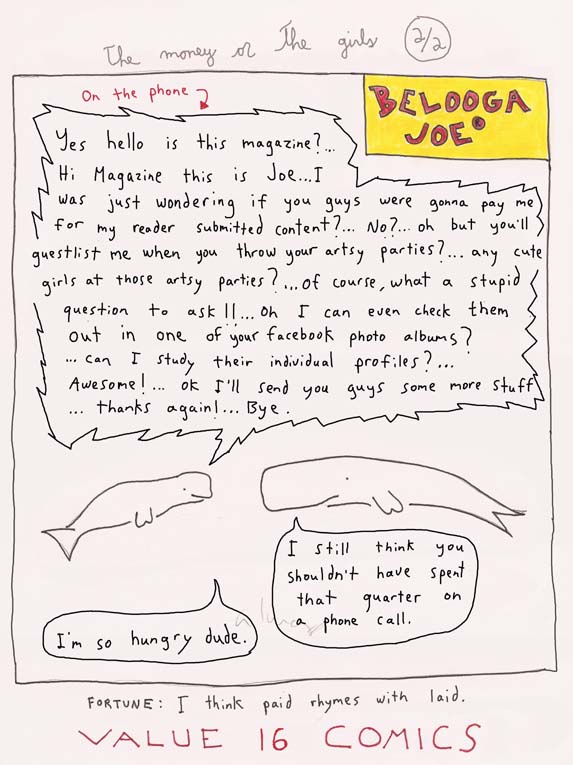 The money or The girls 2/2
On the phone
BELOOGA
JOE®
Yes hello is this magazine?...
Hi Magazine this is Joe...I
was just wondering if you guys were gonna pay me
for my reader submitted content?... No?... oh but you'll
guestlist me when you throw your artsy parties?... any cute
girls at those artsy parties?...of course, what a stupid
question to ask!!...Oh I can even check them
out in one of your facebook photo albums?
... can I study their individual profiles?...
Awesome!... ok I'll send you guys some more stuff
... thanks again!... Bye.
I still think you
shouldn't have spent
that quarter on
a phone call.
I'm so hungry dude.
FORTUNE: I think paid rhymes with laid.
VALUE 16 COMICS